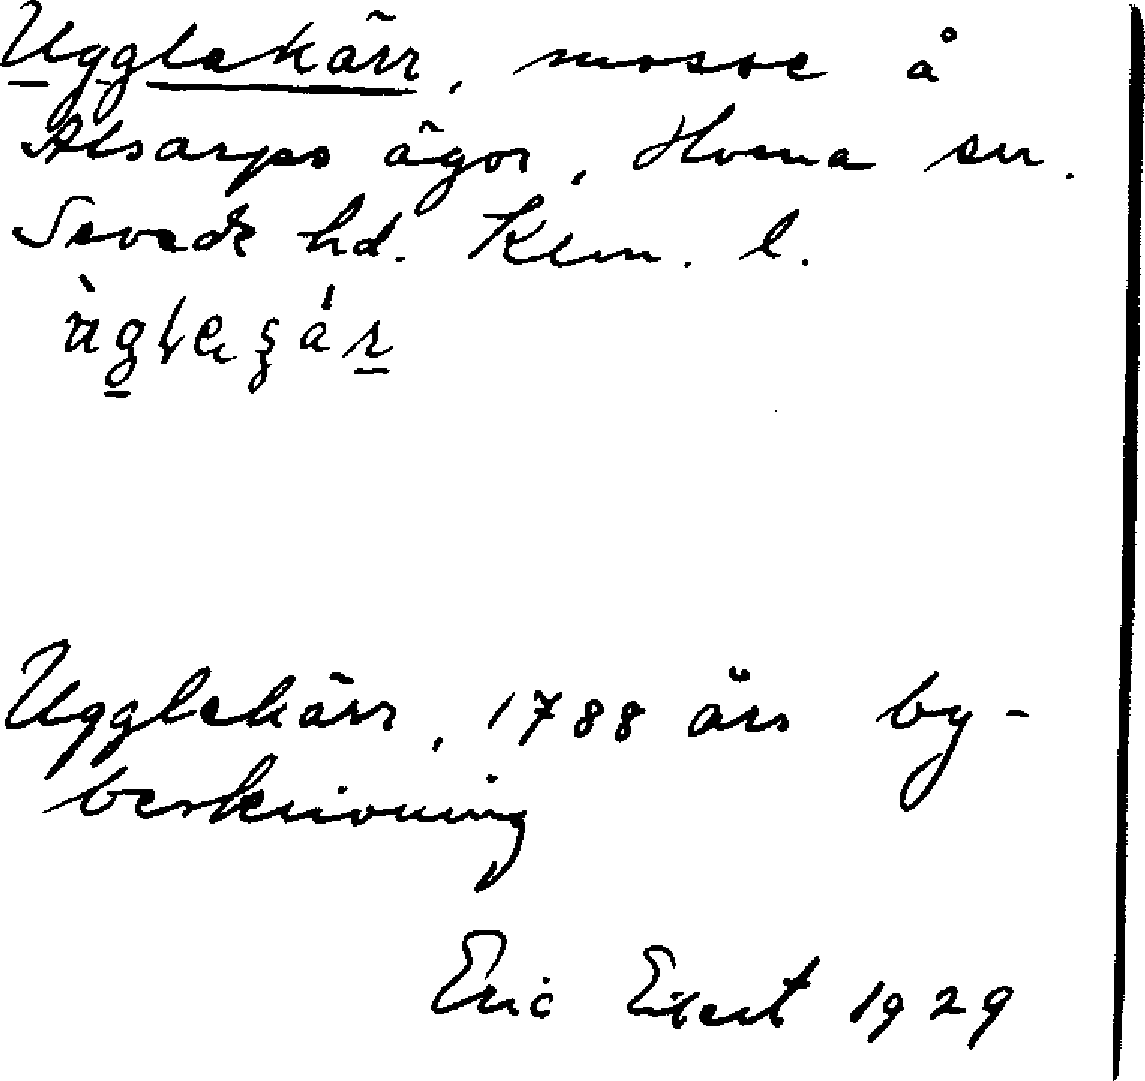 Ugglekärr, mosse å
Alsarps ägor, Hvena sn.
Sevede hd. Klm. l.
Ugglekärr, 1788 års by-
beskrivning
Eric Elgert 1929